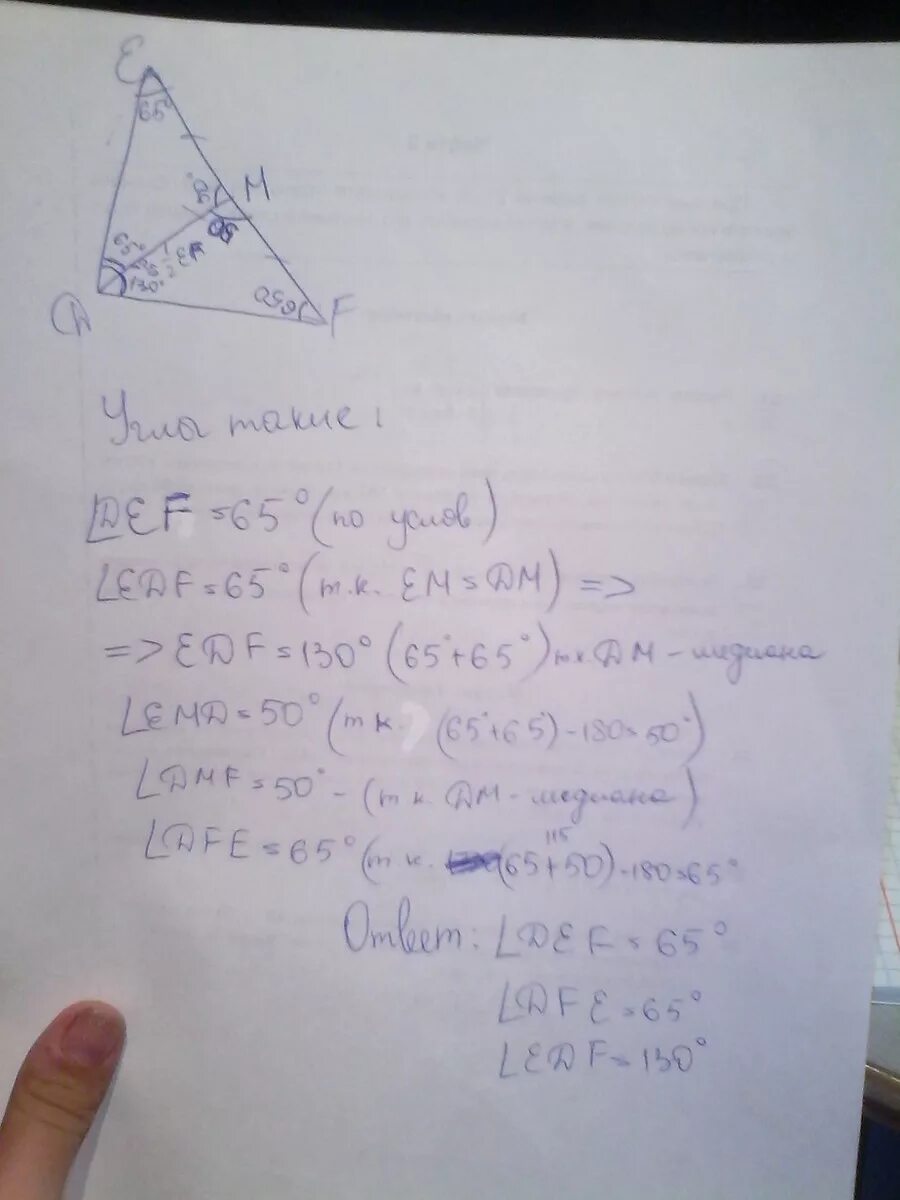 E
65°
M
50°
50
65°
65°
1/2 EF
130°
650
D
F
Углы такие:
∠DEF = 65° (по услов)
∠EDF = 65° (т.к. EM = DM) =>
=> EDF = 130° (65°+65°) т.к. DM – медиана
∠EMD = 50° (т к. (65°+65°) – 180 = 50°)
∠DMF = 50° – (т к. DM – медиана)
115
∠DFE = 65° (т к. (65+50) – 180 = 65°
Ответ: ∠DEF = 65°
∠DFE = 65°
∠EDF = 130°